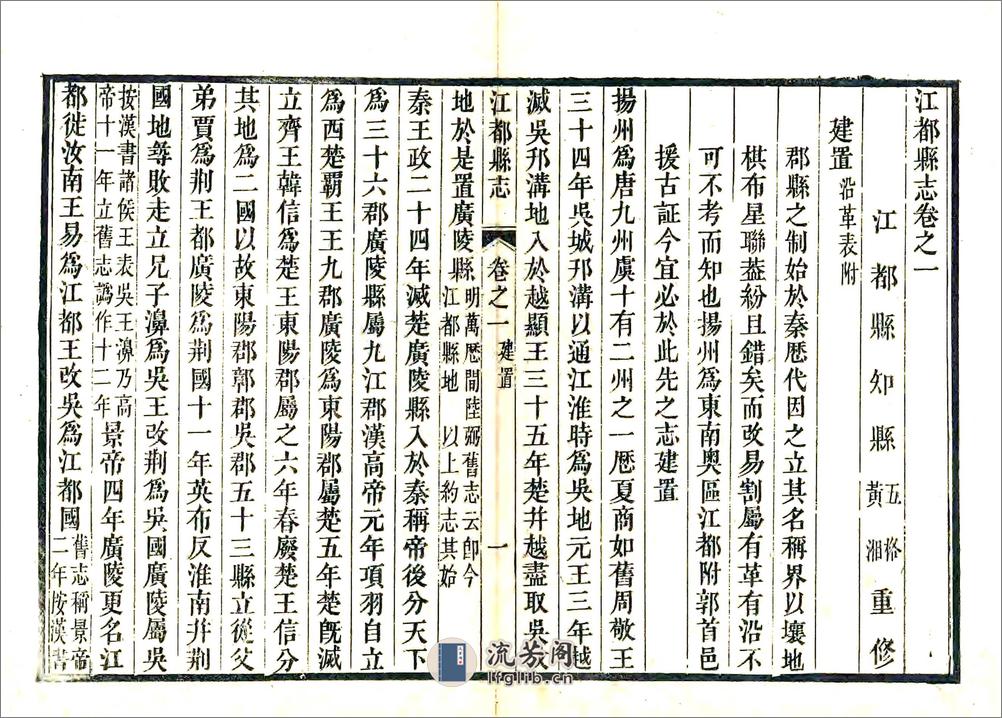 江都縣志卷之一
江都縣知縣五格黃湘重修
建置沿革表附
郡縣之制始於秦歷代因之立其名稱界以壤地
棋布星聯葢紛且錯矣而改易割屬有革有沿不
可不考而知也揚州為東南奧區江都附郭首邑
援古証今宜必於此先之志建置
揚州為唐九州虞十有二州之一歷夏商如舊周敬王
三十四年吳城邗溝以通江淮時為吳地元王三年越
滅吳邗溝地入於越顯王三十五年楚并越盡取吳
江都縣志 卷之一 建置 一
地於是置廣陵縣明萬歷間陸弼舊志云卽今江都縣地 以上約志其始
秦王政二十四年滅楚廣陵縣入於秦稱帝後分天下
為三十六郡廣陵縣屬九江郡漢高帝元年項羽自立
為西楚霸王王九郡廣陵為東陽郡屬楚五年楚旣滅
立齊王韓信為楚王東陽郡屬之六年春廢楚王信分
其地為二國以故東陽郡鄣郡吳郡五十三縣立從父
弟賈為荆王都廣陵為荆國十一年英布反淮南并荆
國地尋敗走立兄子濞為吳王改荆為吳國廣陵屬吳
按漢書諸侯王表吳王濞乃高帝十一年立舊志譌作十二年景帝四年廣陵更名江
都徙汝南王易為江都王改吳為江都國舊志稱景帝二年按漢書
流芳阁
lfglib.cn